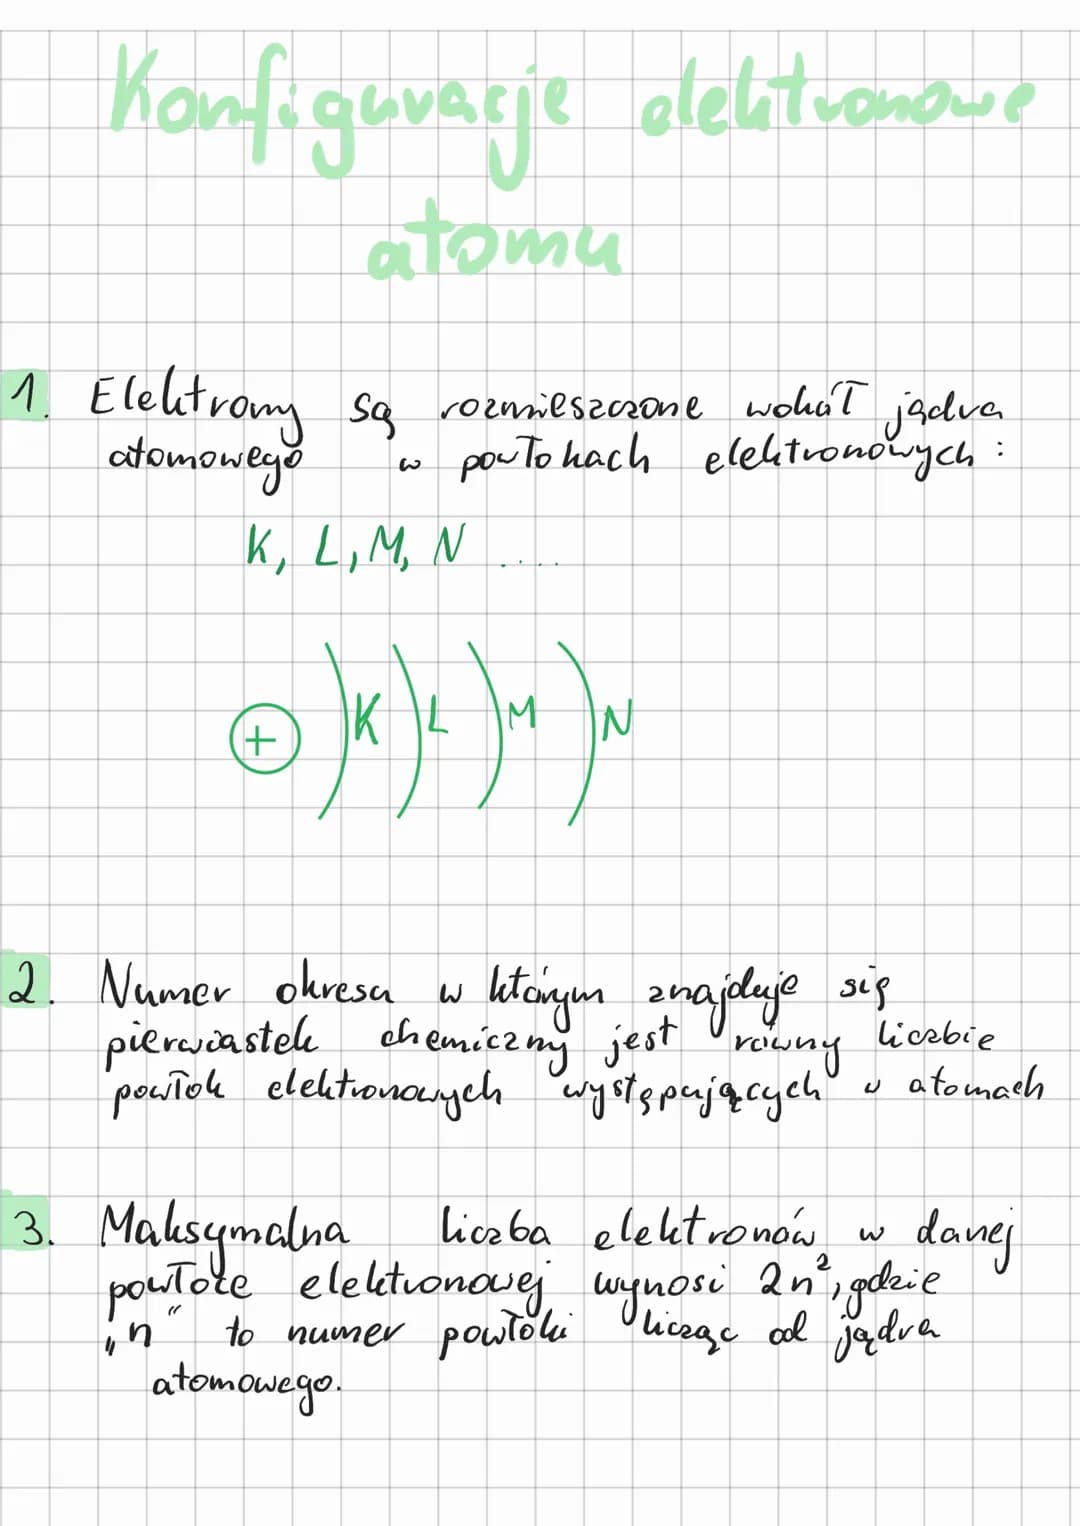 Konfiguracje elektronowe
atomu
1. Elektrony są rozmieszczone wokół jądra
atomowego w powłokach elektronowych:
K, L, M, N ....
+ K L M N
2. Numer okresu w którym znajduje się
pierwiastek chemiczny jest równy liczbie
powłok elektronowych występujących w atomach
3. Maksymalna liczba elektronów w danej
powłoce elektronowej wynosi 2n², gdzie
„n" to numer powłoki licząc od jądra
atomowego.